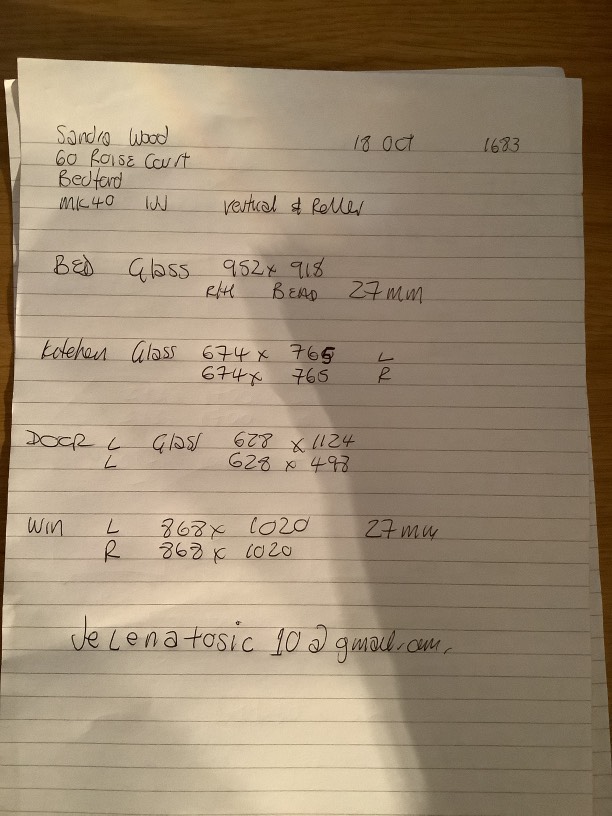 Sandra Wood 18 Oct 1683
60 Roise Court
Bedford
MK40 1JJ vertical & Roller
BED Glass 952 x 918
R/H BEAD 27mm
Kitchen Glass 674 x 765 L
674 x 765 R
DOOR L Glass 628 x 1124
L 628 x 498
Win L 868 x 1020 27mm
R 868 x 1020
Jelenatosic10@gmail.com.